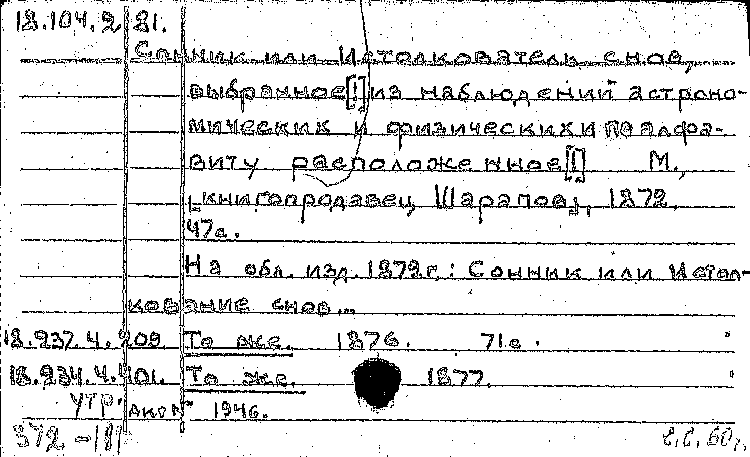 18.104.2.81.
Сонник или Истолкователь снов,
выбранное[!] из наблюдений астроно-
мических и физических и по алфа-
виту расположенное[!] М.,
"книгопродавец Шарапов", 1872.
47с.
На обл. изд. 1872г.: Сонник или Истол-
кование снов...
18.237.4.209. То же. 1876. 71с.
18.234.4.401. То же. 1877.
утр. акт 1946.
372-181